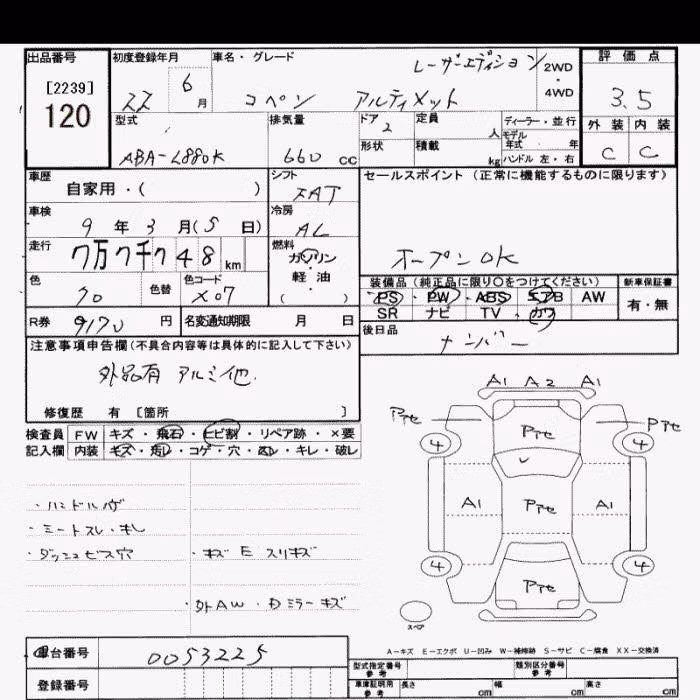 出品番号 初度登録年月 車名・グレード レーザーエディション 2WD・4WD 評価点
[2239] 22 6月 コペン アルティメット 3.5
120
型式 排気量 ドア 2 定員 人 ディーラー・並行 外装 内装
ABA-L880K 660 cc 形状 積載 kg モデル年式 年 ハンドル 左・右 C C
車歴 自家用・( ) シフト セールスポイント(正常に機能するものに限ります)
車検 9年3月(5日) 冷房 AC
走行 7万7千748km 燃料 ガソリン・軽油 ( ) オープンOK
色 クロ 色替 色コード X07 装備品(純正品に限り○をつけてください) 新車保証書
PS PW ABS エアB AW 有・無
SR ナビ TV カワ
R券 9170円 名変通知期限 月 日 後日品 ナンバー
注意事項申告欄(不具合内容等は具体的に記入して下さい)
外品有 アルミ他.
修復歴 有 [箇所 ]
検査員 FW キズ・飛石・ヒビ割・リペア跡・×要
記入欄 内装 キズ・汚レ・コゲ・穴・凶レ・キレ・破レ
A1 A2 A1
Pアセ Pアセ Pアセ
4 4
A1 Pアセ A1
4 4
Pアセ
スペア
・ハンドルハゲ
・シートスレ・キレ
・ダッシュビス穴 ・キズ E スリキズ
・外AW・Dミラーキズ
A-キズ E-エクボ U-凹み W-補修跡 S-サビ C-腐食 XX-交換済
車台番号 0053225
登録番号
型式指定番号 参考 類別区分番号 参考
車庫証明用 参考 長さ cm 幅 cm 高さ cm